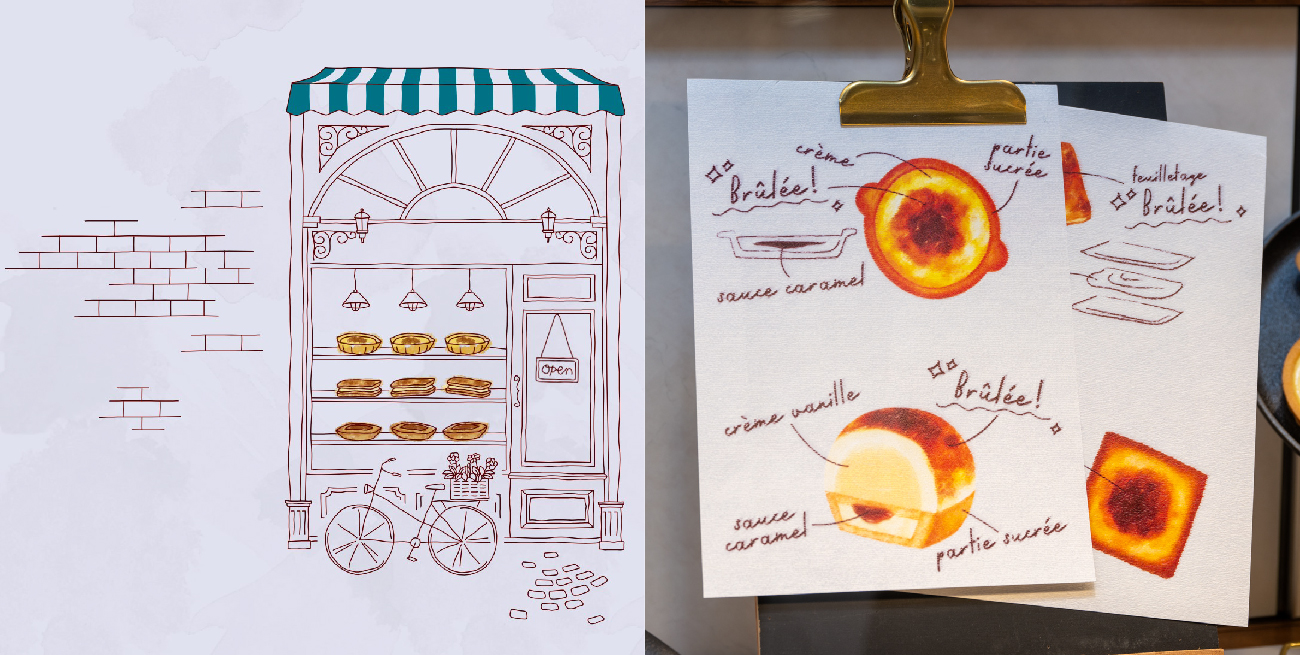 open
crème
Brûlée!
partie
sucrée
sauce caramel
crème vanille
Brûlée!
sauce
caramel
partie sucrée
feuilletage
Brûlée!